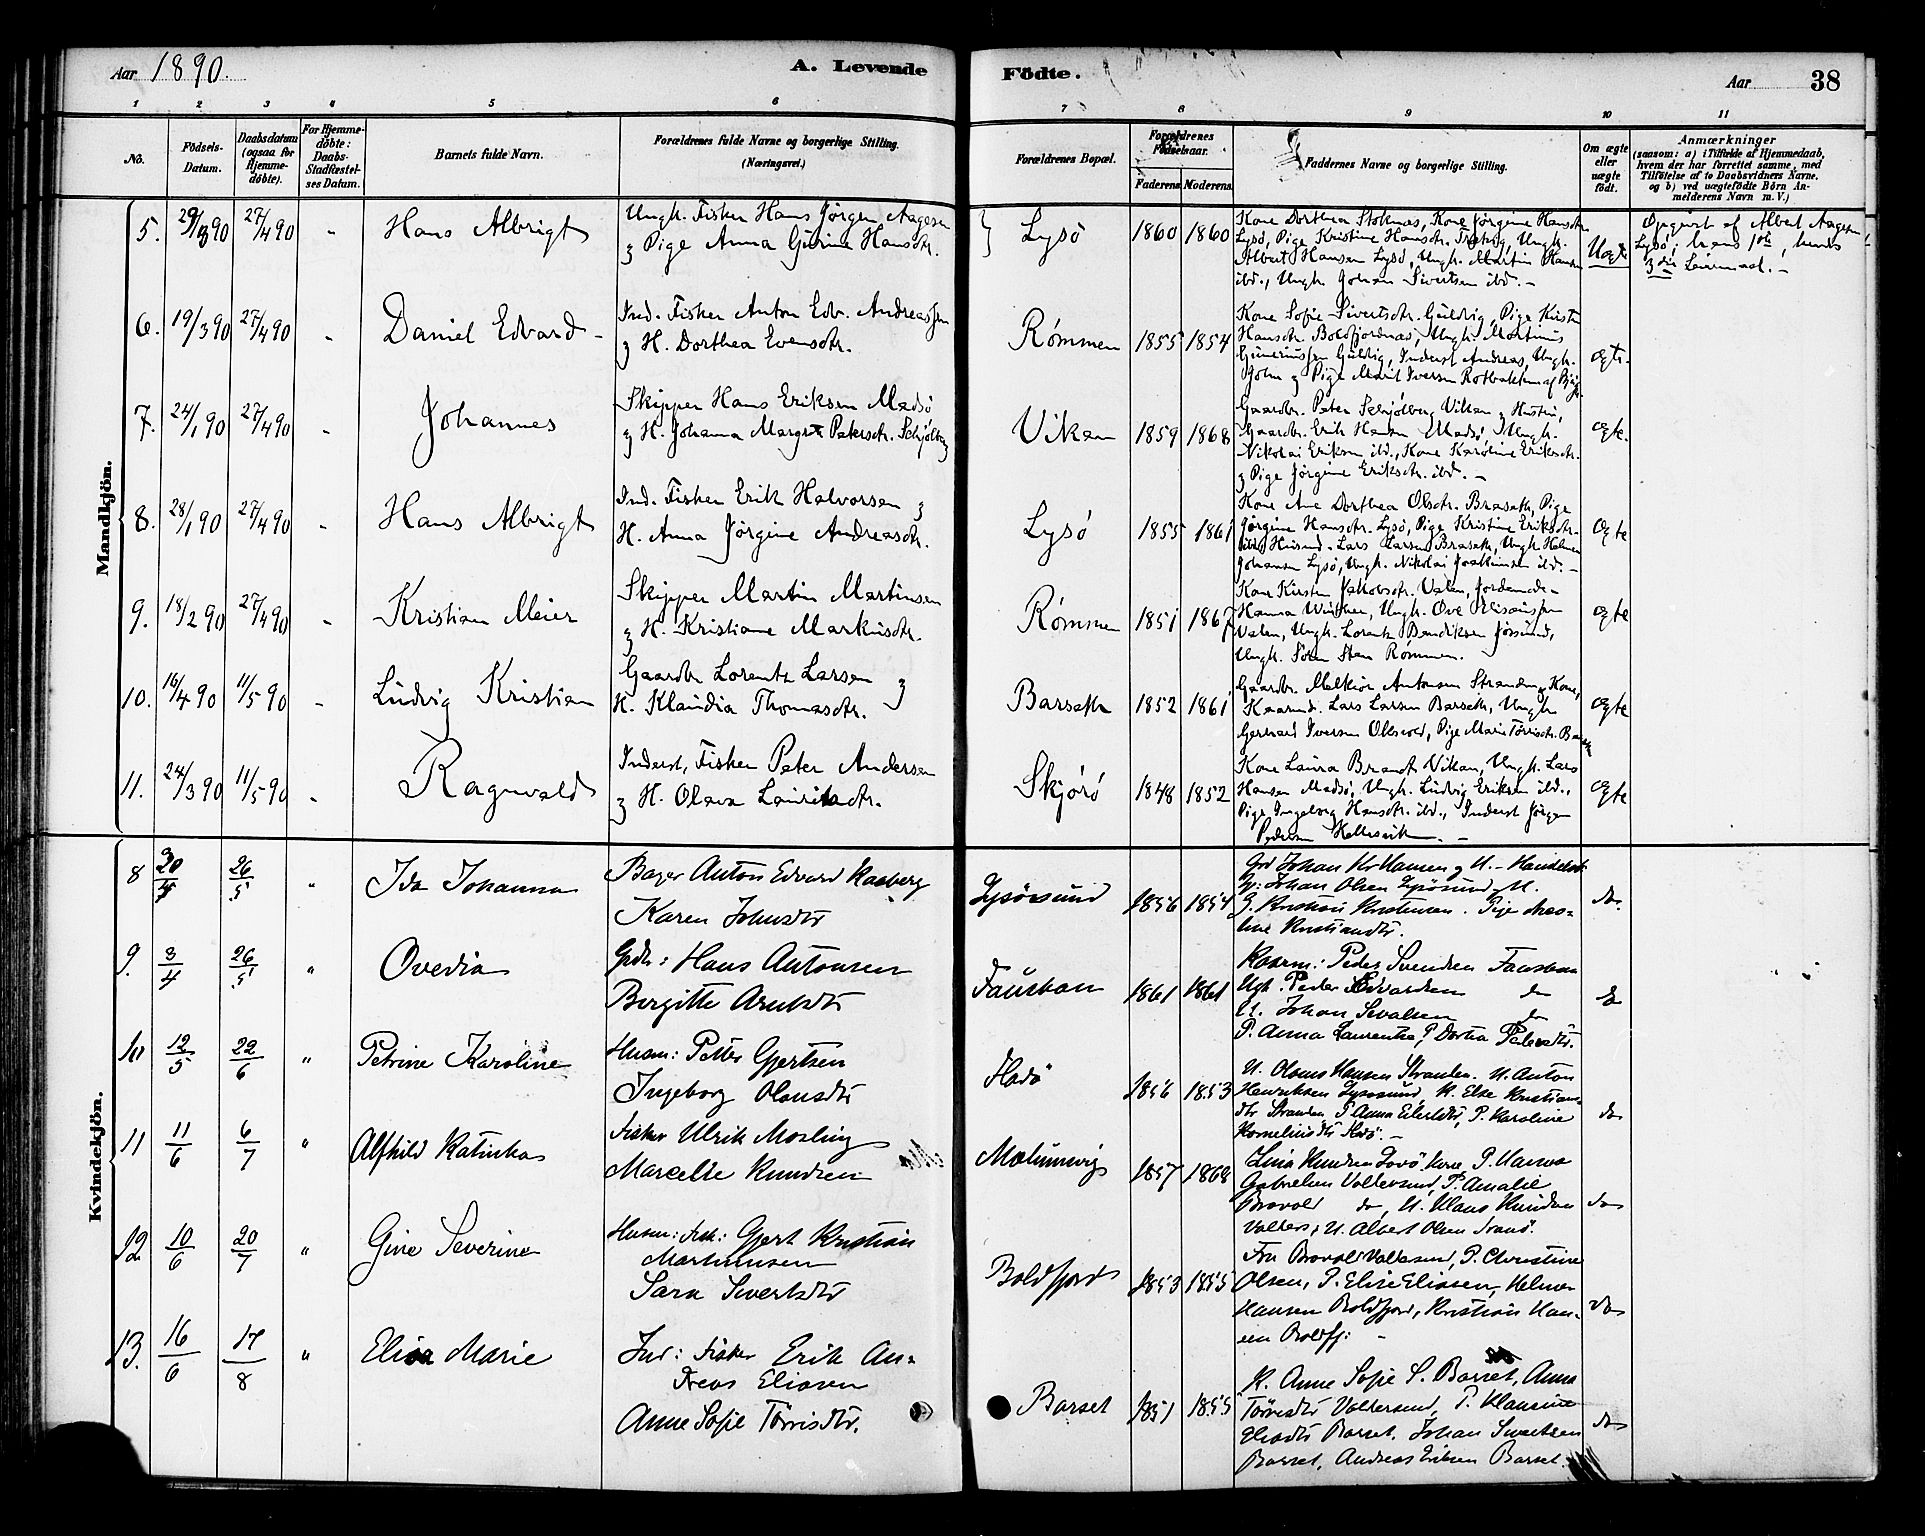 Aar 1890.
A. Levende
Födte.
Aar
38
1 2 3 4 5 6 7 8 9 10 11
No.
Födsels-Datum.
Daabsdatum (ogsaa for Hjemme-döbte).
For Hjemme-döbte: Daabs-Stadfæstel-ses Datum.
Barnets fulde Navn.
Forældrenes fulde Navne og borgerlige Stilling. (Næringsvei.)
Forældrenes Bopæl.
Forældrenes Födselsaar.
Faderens
Moderens
Faddernes Navne og borgerlige Stilling.
Om ægte eller uægte födt.
Anmærkninger
(saasom: a) i Tilfælde af Hjemmedaab,
hvem der har forrettet samme, med
Tilföielse af to Daabsvidners Navne,
og b) ved uægtefödte Börn An-
melderens Navn m. V.)
Mandkjön.
5. 29/3 90 27/4 90 " Hans Albrigt
Ungk. Fisker Hans Jörgen Aagesen
& Pige Anna Gurine Hansdtr.
Lysö 1860 1860
Kone Dorthea Stoknes, Kone Jörgine Hansdtr.
Lysö, Pige Kristine Hansdtr. Ungk.
Albert Hansen Lysö, Ungk. Martin Hansen
ibd., Ungk. Johan Sivertsen ibd. -
Uægte
Opgivet af Albert Aagesen
Lysö, hans 1ste, hendes
3die Leiermaal. -
6. 19/3 90 27/4 90 " Daniel Edvard -
Ind. Fisker Anton Edv. Andreassen
& H. Dorthea Evensdtr.
Rømmen 1855 1854
Kone Sofie Sivertsdtr. Guldvig, Pige Kirsten
Hansdtr. Boldfjordnes, Ungk. Martinus
Guldvig, Inderst Andreas, Ungk.
John & Pige Marit Iversen
ægte.
7. 24/1 90 27/4 90 " Johannes
Skipper Hans Eriksen Madsö
& H. Johanna Margrete Petersdtr. Schjölberg
Viken 1859 1868
Gaardbr. Peter Schjölberg Viken & Hustru,
Gaardbr. Erik Hansen Madsö, Ungk.
Nikolai Eriksen ibd., Kone Karoline Eriksdtr.
& Pige Jörgine Eriksdtr. ibd. -
ægte.
8. 28/1 90 27/4 90 " Hans Albrigt
Ind. Fisker Erik Halvorsen &
H. Anna Jörgine Andreasdtr.
Lysö 1855 1861
Kone Ane Dorthea Olsdtr. Braseth, Pige
Jörgine Hansdtr. Lysö, Pige Kristine Eriksdtr.
ibd., Husmd. Lars Larsen Braseth, Ungk. Helmer
Johansen Lysö, Ungk. Nikolai Joakimsen ibd. -
ægte
9. 18/2 90 27/4 90 " Kristian Meier
Skipper Martin Martinsen
& H. Kristiane Markusdtr.
Rømmen 1851 1867
Kone Kirsten Jakobsdtr. Valen, Jordemoder
Hanna Ungk. Ove
Valen, Ungk. Lorents Bendiksen Jössund,
Ungk. Sören Sten Rømmen.
ægte
10. 16/4 90 11/5 90 " Ludvig Kristian
Gaardbr. Lorents Larsen &
H. Klaudia Thomasdtr.
Barseth 1852 1861
Gaardbr. Melkior Antonsen Stranden & Kone,
Kaarmd. Lars Larsen Barseth, Ungk.
Gerhard Iversen Pige Marie Törrisdtr.
ægte
11. 24/3 90 11/5 90 " Ragnvald
Inderst, Fisker Peter Andersen
& H. Olava Lauritsdtr.
Skjörö 1848 1852
Kone Laura Brandt Viken, Ungk. Lars
Hansen Madsö, Ungk. Ludvig Eriksen ibd.,
Pige Ingeborg Hansdtr. ibd., Inderst Jörgen
Pedersen Hellesvik. -
ægte
Kvindekjön.
8 20/4 26/5 " Ida Johanna
Bager Anton Edvard Kaaberg
Karen Johnsdtr
Lysösund 1856 1854
Grd Johan Kr Hansen & H. - Handelsb.
Johan Olsen Lysösund & H.
G. Kristian Kristensen. Pige
Kristiansdtr.
do.
9. 3/4 26/5 " Ovedia
Grdbr: Hans Antonsen
Bergitte Arntsdtr
Faustan 1861 1861
Kaarm.: Peder Svendsen Faustan
Ugk. Peder Edvardsen do
U. Johan Sivalsen do
P. Anna Laurentse, P. Dortea Petersdtr.
do
10 12/5 22/6 " Petrine Karoline
Husm: Petter Gjertsen
Ingeborg Olausdtr
Hosö 1856 1853
U. Olaus Hansen Stranden. U. Anton
Henriksen Lysösund, K. Else Kristians-
dtr Stranden P. Anna Eilertsdtr, P. Karoline
Korneliusdtr Hosö. -
do
11 11/6 6/7 " Alfhild Katinka
Fisker Ulrik Mosling
Marcelie Knudsen
1857 1868
Lina Knudsen Kone, P. Hanna
Gabrielsen Valdersund, P. Amalie
Brovold do, U. Klaus Knudsen
Valders, U. Albert Olsen
do
12 10/6 20/7 " Gine Severine
Husm: Fisk.: Gjert Kristian
Martinusen
Sara Sivertsdtr
Boldfjord 1853 1855
Fru Brovold Valdersund, P. Christine
Olsen, P. Elise Eliasen, Helmer
Hansen Boldfjord, Kristian Han-
sen Boldfj: -
do
13. 16/6 17/8 " Elisa Marie
Ind: Fisker Erik An-
dreas Eliasen
Anne Sofie Törrisdtr.
Barset 1851 1855
K. Anne Sofie S. Barset, Anna
Törrisdtr Valdersund, P. Klausine
Eliasdtr Barset. Johan Sivertsen
Barset, Andreas Eriksen Barset.
do